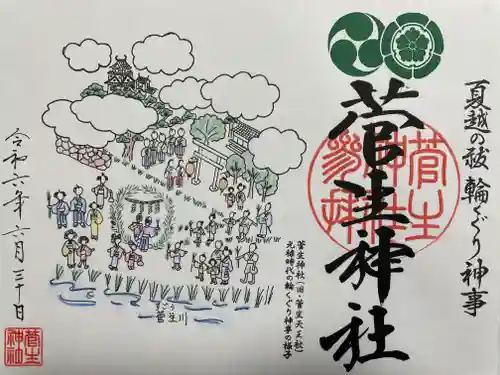 夏越の祓 輪くぐり神事
菅生神社
菅生神社(旧・菅生天王社)
元禄時代の輪くぐり神事の様子
すごう
菅生川
令和六年 六月 三十日
菅生
神社